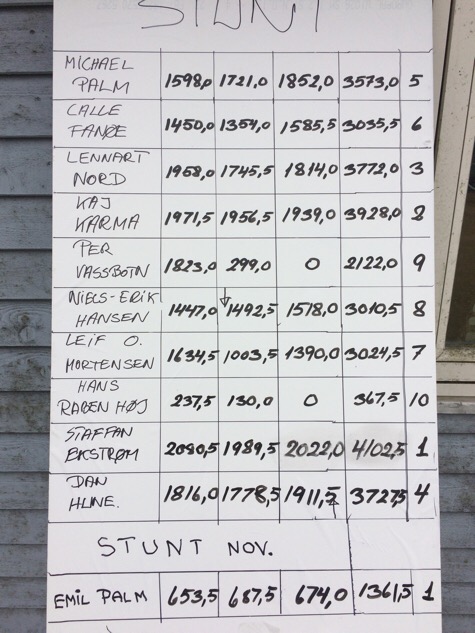 STUNT
MICHAEL
PALM 1598,0 1721,0 1852,0 3573,0 5
CALLE
FANØE 1450,0 1354,0 1585,5 3035,5 6
LENNART
NORD 1958,0 1745,5 1814,0 3772,0 3
KAJ
KARMA 1971,5 1956,5 1939,0 3928,0 2
PER
VASSBOTN 1823,0 299,0 0 2122,0 9
NIELS-ERIK
HANSEN 1447,0 1492,5 1518,0 3010,5 8
LEIF O.
MORTENSEN 1634,5 1003,5 1390,0 3024,5 7
HANS
RABEN HØJ 237,5 130,0 0 367,5 10
STAFFAN
EKSTRØM 2080,5 1989,5 2022,0 4102,5 1
DAN
1816,0 1778,5 1911,5 3727,5 4
STUNT NOV.
EMIL PALM 653,5 687,5 674,0 1361,5 1